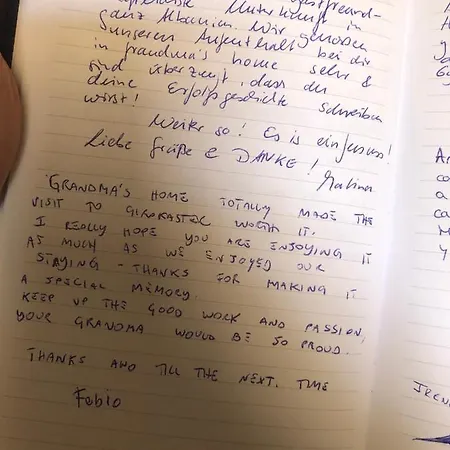 Unterkunft in
ganz Albanien. Wir genossen
unseren Aufenthalt bei dir
in grandma's home sehr &
sind überzeugt, dass du
deine Erfolgsgeschichte schreiben
wirst!
Weiter so! Es is einfach
Liebe Grüße & DANKE!
GRANDMA'S HOME TOTALLY MADE THE
VISIT TO GIROKASTER WORTH IT.
I REALLY HOPE YOU ARE ENJOYING IT
AS MUCH AS WE ENJOYED OUR
STAYING - THANKS FOR MAKING IT
A SPECIAL MEMORY.
KEEP UP THE GOOD WORK AND PASSION,
YOUR GRANDMA WOULD BE SO PROUD.
THANKS AND TILL THE NEXT. TIME
Fabio